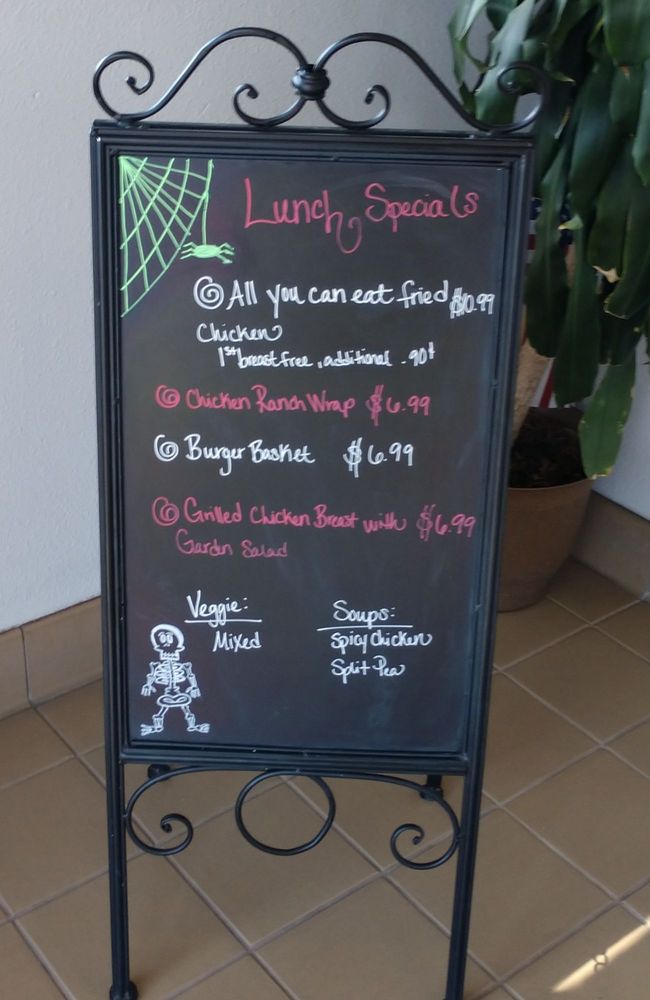 Lunch Specials
All you can eat fried $10.99
Chicken
1st breast free, additional .90¢
Chicken Ranch Wrap $6.99
Burger Basket $6.99
Grilled Chicken Breast with $6.99
Garden Salad
Veggie: Soups:
Mixed Spicy Chicken
Split Pea